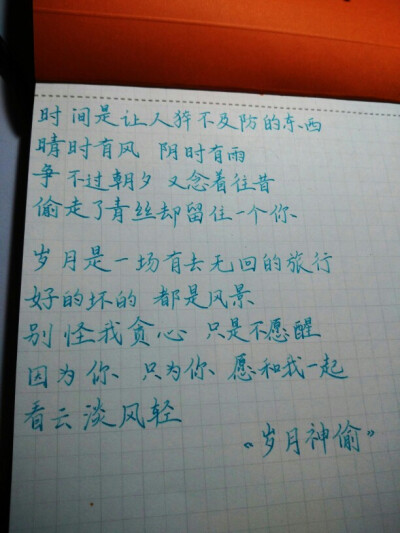 时间是让人猝不及防的东西
晴时有风 阴时有雨
争不过朝夕 又念着往昔
偷走了青丝却留住一个你
岁月是一场有去无回的旅行
好的坏的 都是风景
别怪我贪心 只是不愿醒
因为你 只为你 愿和我一起
看云淡风轻
“岁月神偷”